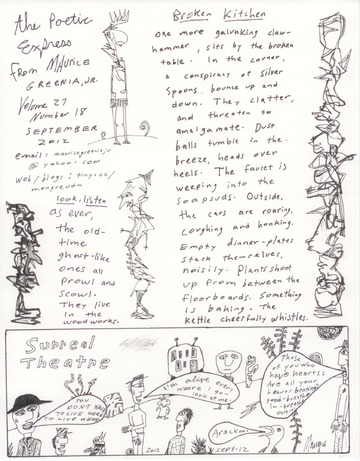 the Poetic
Express
From Maurice
Greenia, Jr.
Volume 27
Number 18
September
2012
email: mauricegreeniajr
@yahoo.com
web/blogs: tiny.cc/
look, listen
as ever,
the old-
time
ghost-like
ones all
prowl and
scowl.
They live
in the
woodworks.
Broken Kitchen
One more galunking claw-
hammer, sits by the broken
table. In the corner,
a conspiracy of silver
spoons bounce up and
down. They clatter,
and threaten to
amalgamate. Dust
balls tumble in the
breeze, heads over
heels. The faucet is
weeping into the
soapsuds. Outside,
the cars are roaring,
coughing and honking.
Empty dinner-plates
stack themselves,
noisily. Plants shoot
up from between the
floorboards. Something
is baking. The
kettle cheerfully whistles.
Surreal
Theatre
You don't have
to live here
to live here
I'm alive every-
where I go.
Look at me
Those
of you who
have hearts:
Are all your
hearts breaking,
2012
Sept. 12